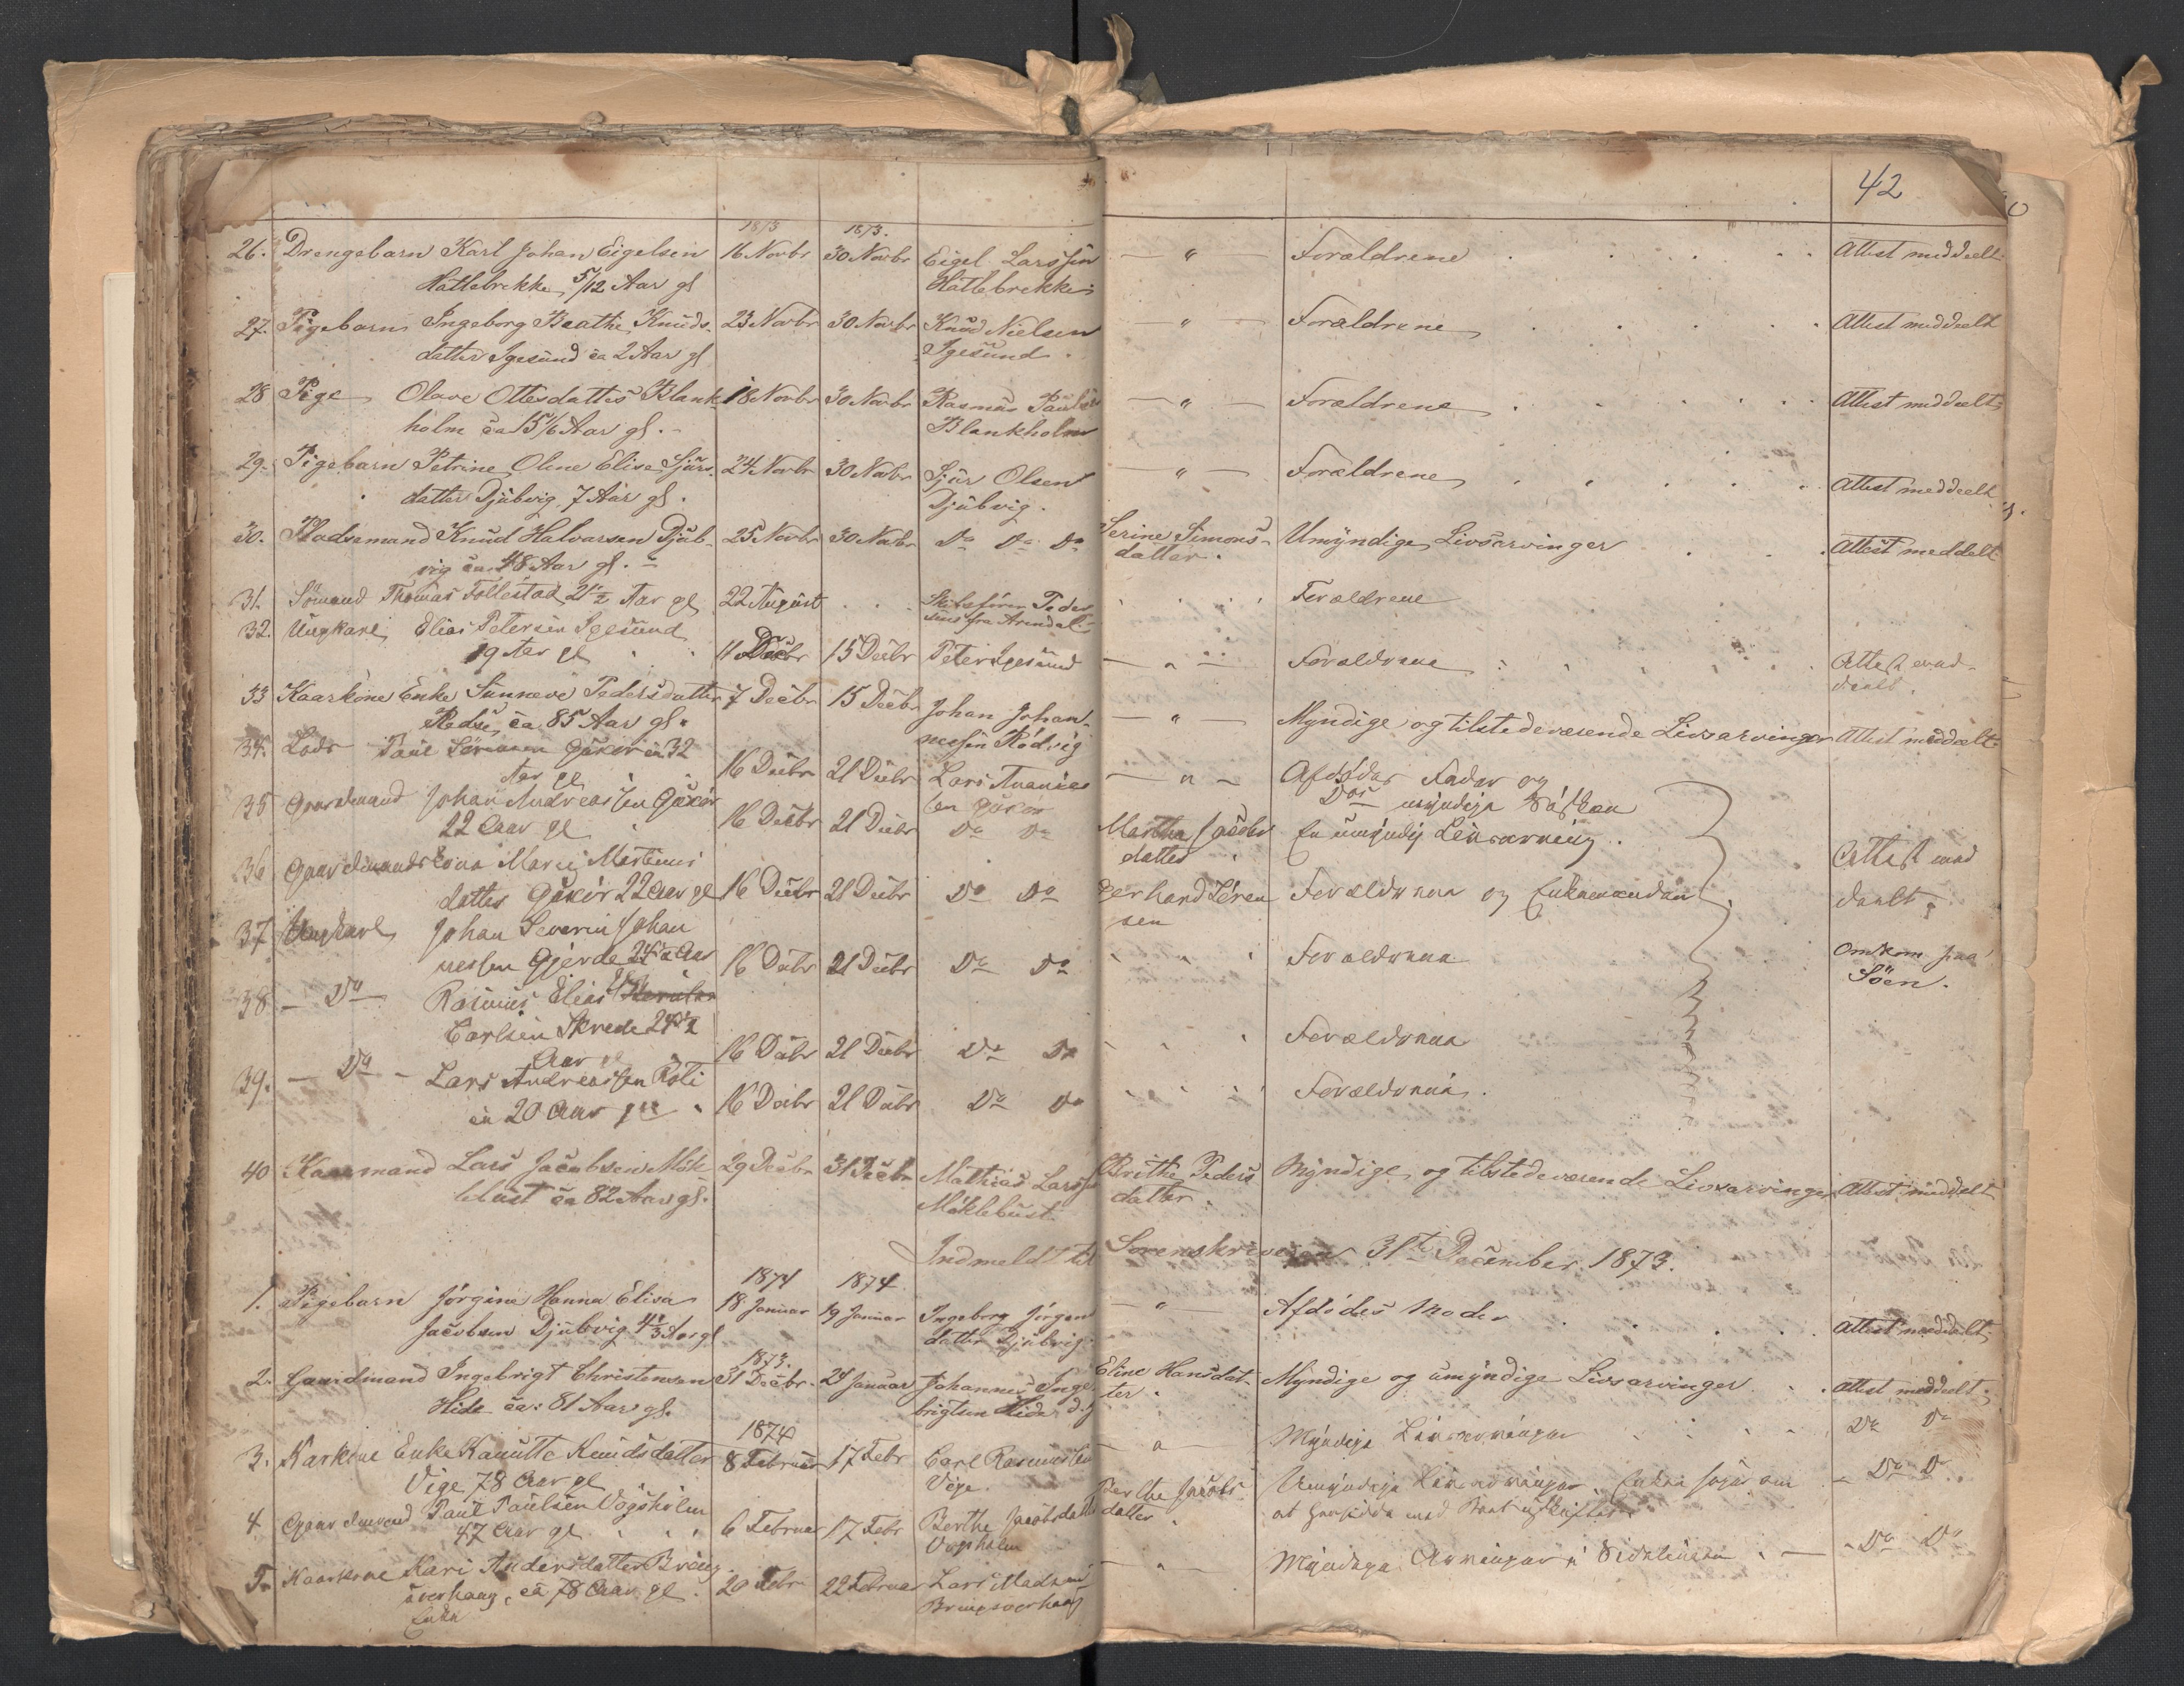 42
1873 1873.
26. Drengebarn Karl Johan Eigelsen 16 Novbr 30 Novbr Eigel Larssen — " — Forældrene Attest meddeelt
Hattebrekke 5/12 Aar gl Hattebrekke
27. Pigebarn Ingeborg Beathe Knuds- 23 Novbr 30 Novbr Knud Nielsen — " — Forældrene Attest meddeelt
datter Igesund ca 2 Aar gl Igesund.
28 Pige Olave Ottesdatter Blank- 18 Novbr 30 Novbr Rasmus Paulsen — " — Forældrene Attest meddeelt
holm ca 15 1/6 Aar gl. Blankholm
29. Pigebarn Petrine Oline Elise Sjurs- 24 Novbr 30 Novbr Sjur Olsen — " — Forældrene Attest meddeelt
datter Djubvig 7 Aar gl. Djubvig.
30. Pladsemand Knud Halvarsen Djub- 25 Novbr 30 Novbr Do Do Do Serine Simons- Umyndige Livsarvinger Attest meddelt
vig ca 48 Aar gl. datter.
31. Sömand Thomas Follestad 21 1/2 Aar gl 22 August Skibsfører Peder Forældrene
sens fra Arendal
32. Ungkarl Elias Petersen Igesund
19 Aar gl 11 Decbr 15 Decbr Peter Igesund — " — Forældrene Attest med-
deelt.
33 Kaarkone Enke Sunneve Pedersdatter 7 Decbr 15 Decbr Johan Johan- — " — Myndige og tilstedeværende Livsarvinger Attest meddelt
ca 85 Aar gl. nessen Rødvig
34. Lods Paul Sörensen Gåkør ca 32
Aar gl 16 Decbr 21 Decbr Lars Ananias — " — Afdødes Fader og
sen Gåkør Dos umyndige Søsken
35 Gaardmand Johan Andreassen Gåkør
22 Aar gl 16 Decbr 21 Decbr Do Do Martha Jacobs En umyndig Livsarving.
datter
36 Gaardmandskone Marie Martinus
datter Gåkør 22 Aar gl 16 Decbr 21 Decbr Do Do Gerhard Sören Forældrene og Enkemanden Attest med
sen deelt
37 Ungkarl Johan Severin Johan
nessen Gjerde 24 1/2 Aar 16 Decbr 21 Decbr Do Do Forældrene Omkom paa
Söen.
38 — Do — Rasmus Elias
Carlsen Skrede 24 1/2
Aar 16 Decbr 21 Decbr Do Do Forældrene
39. — Do — Lars Andreassen Röti
ca 20 Aar gl 16 Decbr 21 Decbr Do Do Forældrene.
40 Kaarmand Lars Jacobsen Mök- 29 Decbr 31 Decbr Mathias Larssen Brithe Peders Myndige og tilstedeværende Livsarvinger Attest meddelt
lebust ca 82 Aar gl. Möklebust datter
Indmeldt til Sorenskriveren 31te December 1873.
1874 1874
1. Pigebarn Jörgine Hanna Elisa 18 Januar 19 Januar Ingeborg Jörgens — " — Afdödes Moder Attest meddelt
Jacobsen Djubvig 4 1/3 Aar gl datter Djubvig
1873.
2. Gaardmand Ingebrigt Christensen 31 Decbr. 24 Januar Johannes Inge- Eline Hansdat- Myndige og umyndige Livsarvinger Attest meddeelt
Hide ca: 81 Aar gl. brigtsen Hide ter.
1874
3. Karkone Enke Kanutte Knudsdatter 8 Februar 17 Febr Carl Rasmussen — " — Myndige Livsarvinger Do Do
Vige 78 Aar gl Vige.
4 Gaardmand Paul Paulsen Vågsholm Berthe Jacobs Umyndige Livsarvinger. Enken søger om Do Do
47 Aar gl 6 Februar 17 Febr Berthe Jacobsdatter datter at hensidde med Boet uskiftet.
Vogsholm
5. Kaarkone Kari Andersdatter Brång- 20 Febr 22 Februar Lars Madsen — " — Myndige Arvinger i Sidelinien Do Do
sverhaug, ca 78 Aar gl. Bringsverhaug
Enke